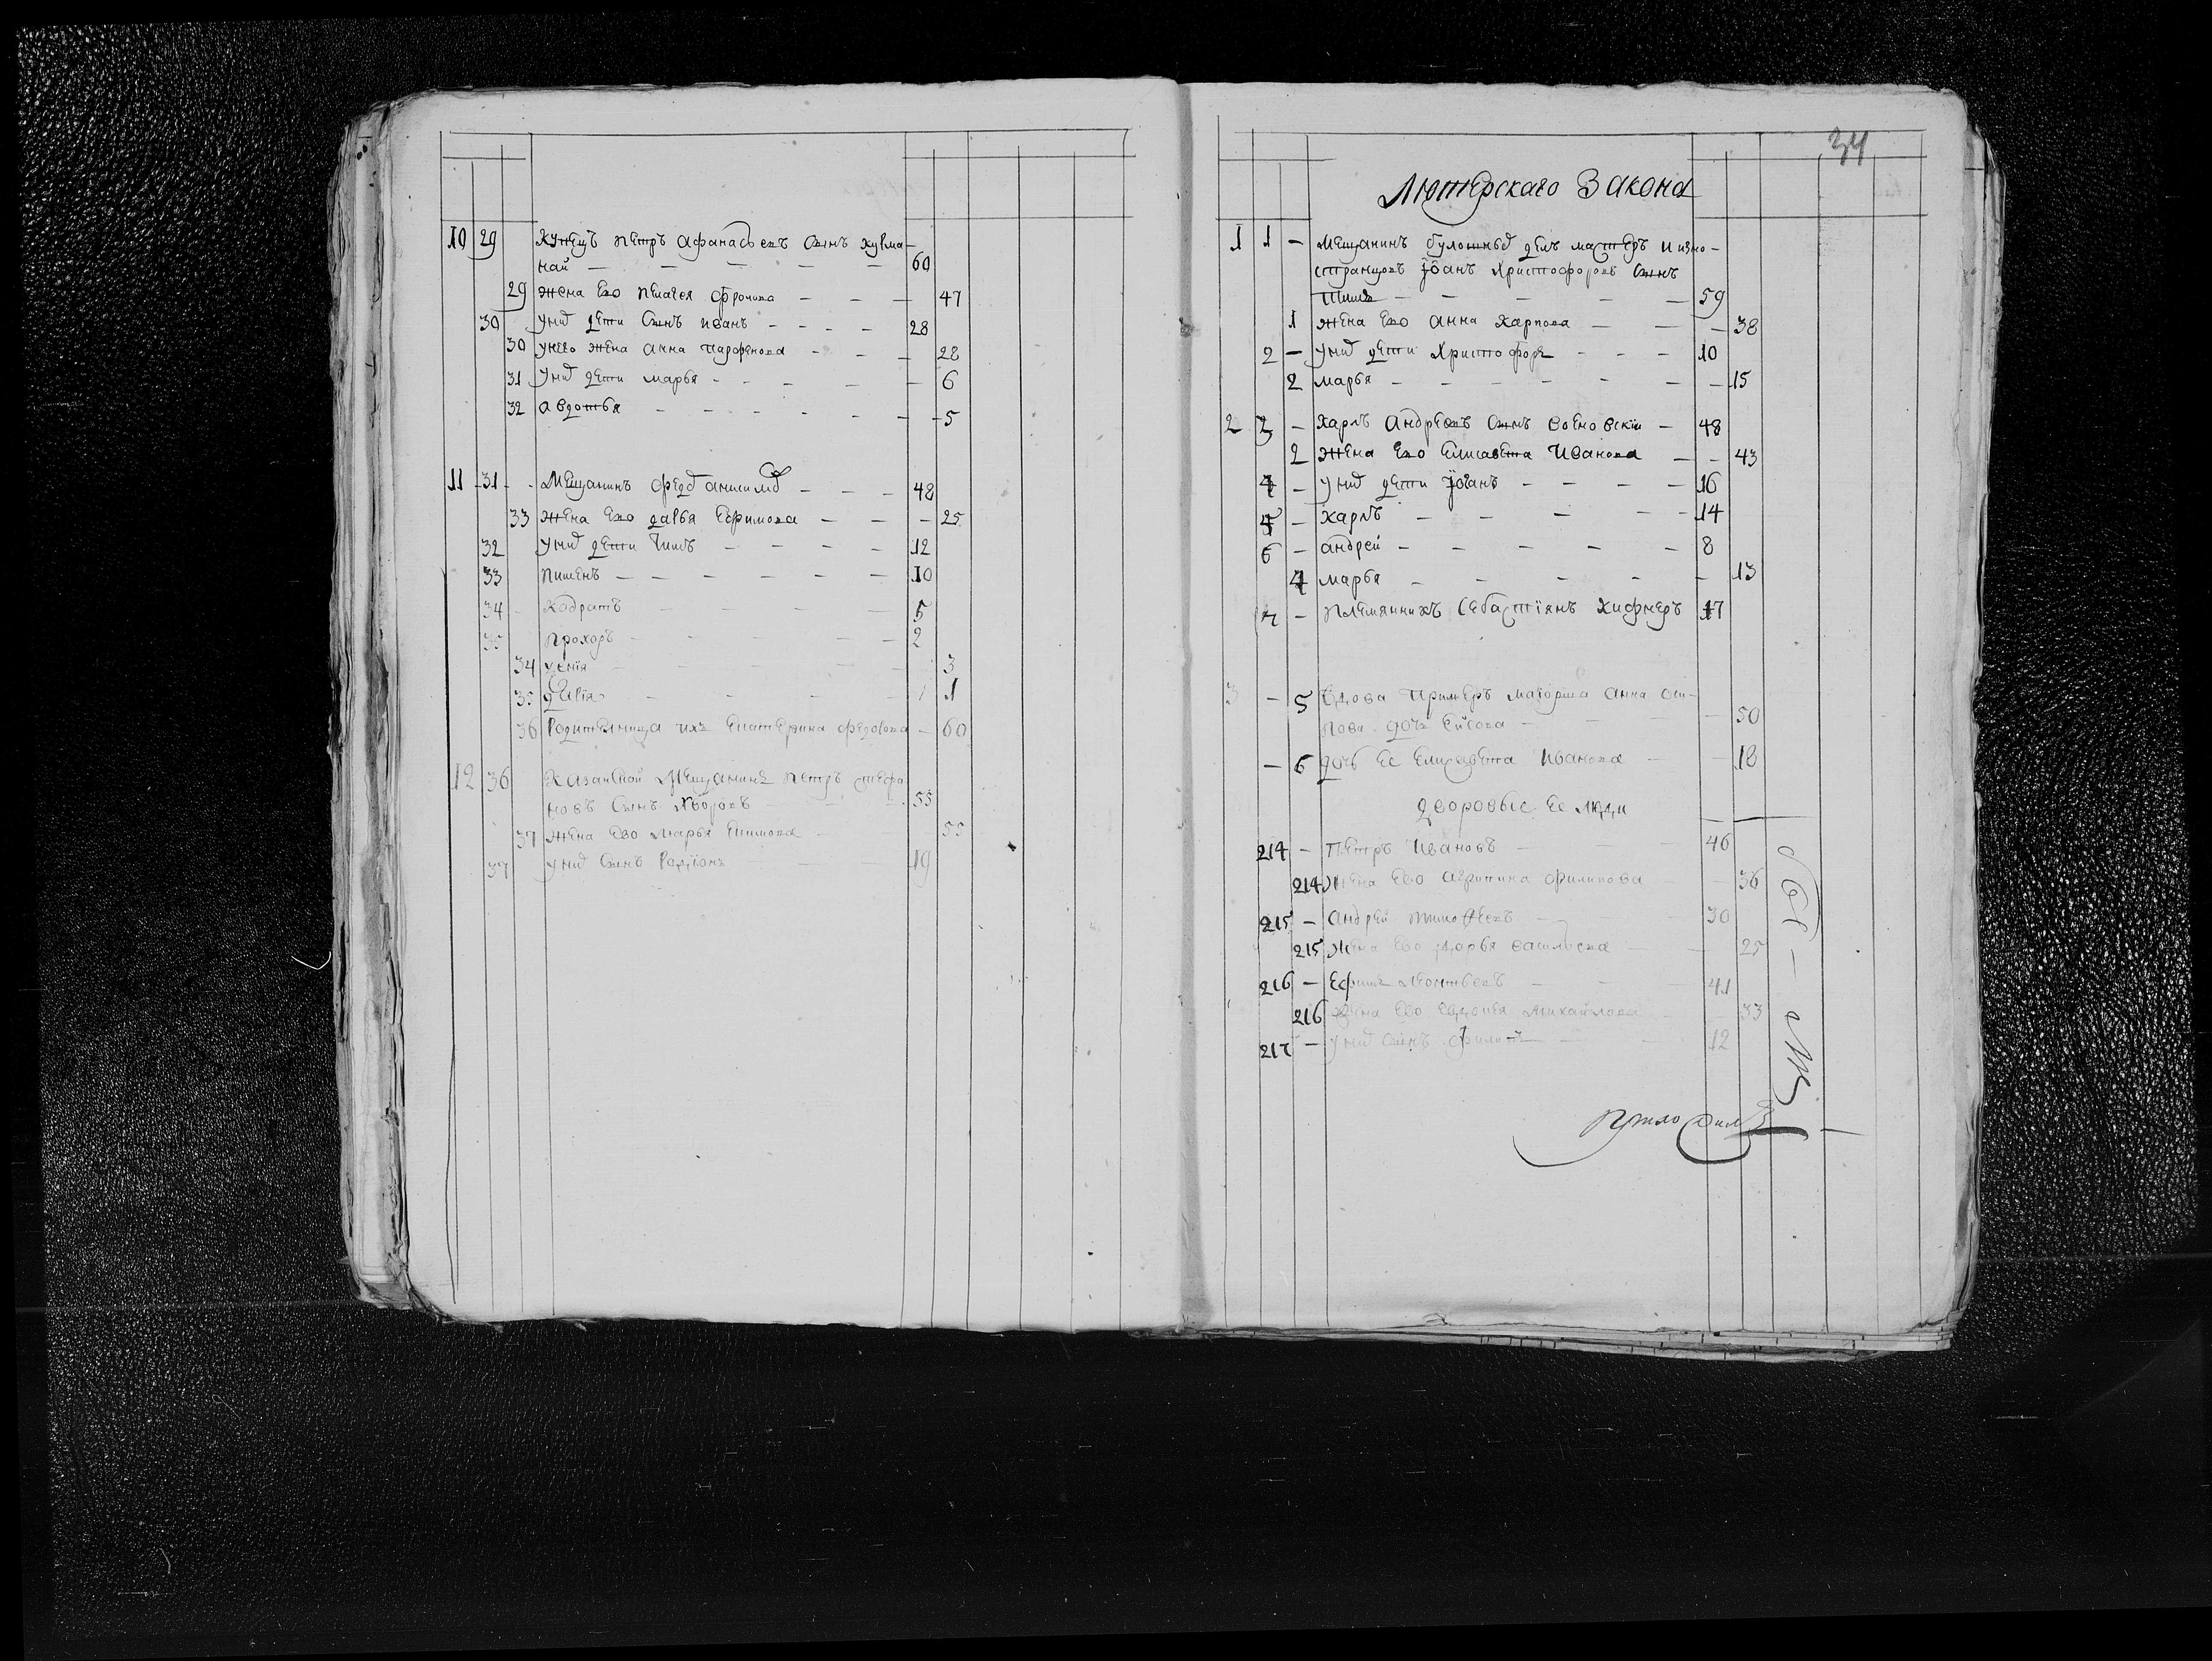 10 29 Купецъ Петръ Афанасьевъ сынъ Кузма-
най — 60
29 жена Ево Пелагея — 47
30 у нихъ дети сынъ Иванъ — 28
30 у него жена Анна Парфенова — 28
31 у нихъ дети Марья — 6
32 Авдотья — 5
11 31 Мещанинъ — 48
33 жена Ево Дарья Ефимова — 25
32 у нихъ дети — 12
33 Пименъ — 10
34 Кодратъ — 5
35 Прохоръ — 2
34 — 3
35 — 1
36 Родительница ихъ Екатерина Федорова — 60
12 36 Казанской Мещанинъ Петръ Стефа
новъ сынъ — 55
37 жена Ево Марья Екимова 55
37 у нихъ сынъ Родїонъ — 19
34
Лютерскаго Закона
1 1 — Мещанинъ булошныхъ делъ мастеръ и изъ ино-
странцовъ Іоанъ Христофоровъ сынъ
— 59
1 жена Ево Анна Карпова — 38
2 — у нихъ дети Христофоръ — 10
2 Марья — 15
2 3 — Карлъ Андреевъ сынъ — 48
2 жена Ево Елисавета Иванова — 43
4 — у нихъ дети Іоганъ — 16
5 — Карлъ — 14
6 — Андрей — 8
4 Марья — 13
7 — Племянникъ Себастїянъ Кифнеръ 17
3 — 5 Вдова Примеръ Маїорша Анна Оси-
пова дочь — 50
— 6 дочь Ее Елизавета Иванова — 18
Дворовые Ее люди
214 — Петръ Ивановъ — 46
214 Жена Ево Агрипина Филипова — 36
215 — Андрей Тимофеевъ — 30
215 Жена Ево Дарья Васильева — 25
216 — Ефимъ Леонтьевъ — 41
216 Жена Ево Евдокия Михайлова — 33
217 — у нихъ сынъ Филипъ — 12